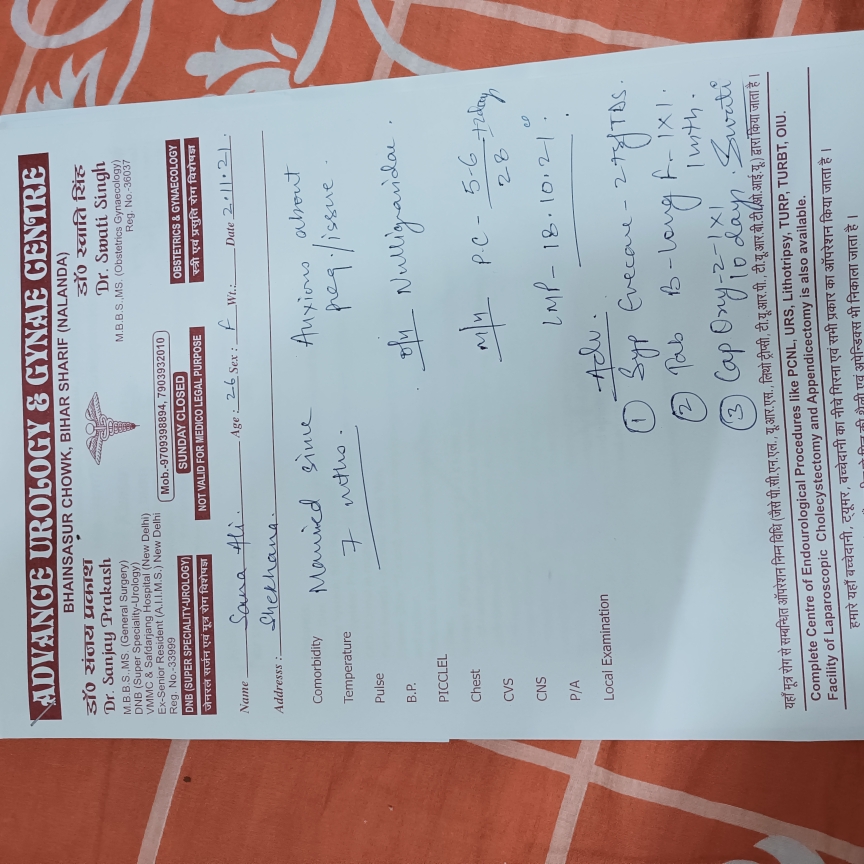 ADVANCE UROLOGY & GYNAE CENTRE
BHAINSASUR CHOWK, BIHAR SHARIF (NALANDA)
डॉ० संजय प्रकाश
Dr. Sanjay Prakash
M.B.B.S.,MS. (General Surgery)
DNB (Super Speciality-Urology)
VMMC & Safdarjang Hospital (New Delhi)
Ex-Senior Resident (A.I.I.M.S.) New Delhi
Reg. No.-33999
DNB (SUPER SPECIALITY-UROLOGY)
जेनरल सर्जन एवं मूत्र रोग विशेषज्ञ
Mob.-9709398894, 7903932010
SUNDAY CLOSED
NOT VALID FOR MEDICO LEGAL PURPOSE
डॉ० स्वाति सिंह
Dr. Swati Singh
M.B.B.S.,MS. (Obstetrics Gynaecology)
Reg. No.-36037
OBSTETRICS & GYNAECOLOGY
स्त्री एवं प्रसुति रोग विशेषज्ञ
Name Sana Ali. Age : 26 Sex : F Wt.: Date 2.11.21.
Addresss : Shekhana.
Comorbidity
Temperature
Pulse
B.P.
PICCLEL
Chest
CVS
CNS
P/A
Local Examination
Married since
7 mths.
Anxious about
preg./issue.
O/H Nulligravidae.
M/H P.C - 5-6
28
LMP - 18.10.21.
Adv.
① Syp - 2tsf TDS.
② Tab B-long F - 1X1
1 mth.
③ Cap Oxy-2 - 1X1
10 days. Swati
यहाँ मूत्र रोग से सम्बन्धित ऑपरेशन निम्न विधि (जैसे पी.सी.एन.एल., यू.आर.एस., लिथो ट्रीप्सी, टी.यू.आर.पी., टी.यू.आर.बी.टी., ओ.आई.यू.) द्वारा किया जाता है।
Complete Centre of Endourological Procedures like PCNL, URS, Lithotripsy, TURP, TURBT, OIU.
Facility of Laparoscopic Cholecystectomy and Appendicectomy is also available.
हमारे यहाँ बच्चेदानी, ट्यूमर, बच्चेदानी का नीचे गिरना एवं सभी प्रकार का ऑपरेशन किया जाता है।
की थैली एवं अपेन्डिक्स भी निकाला जाता है।